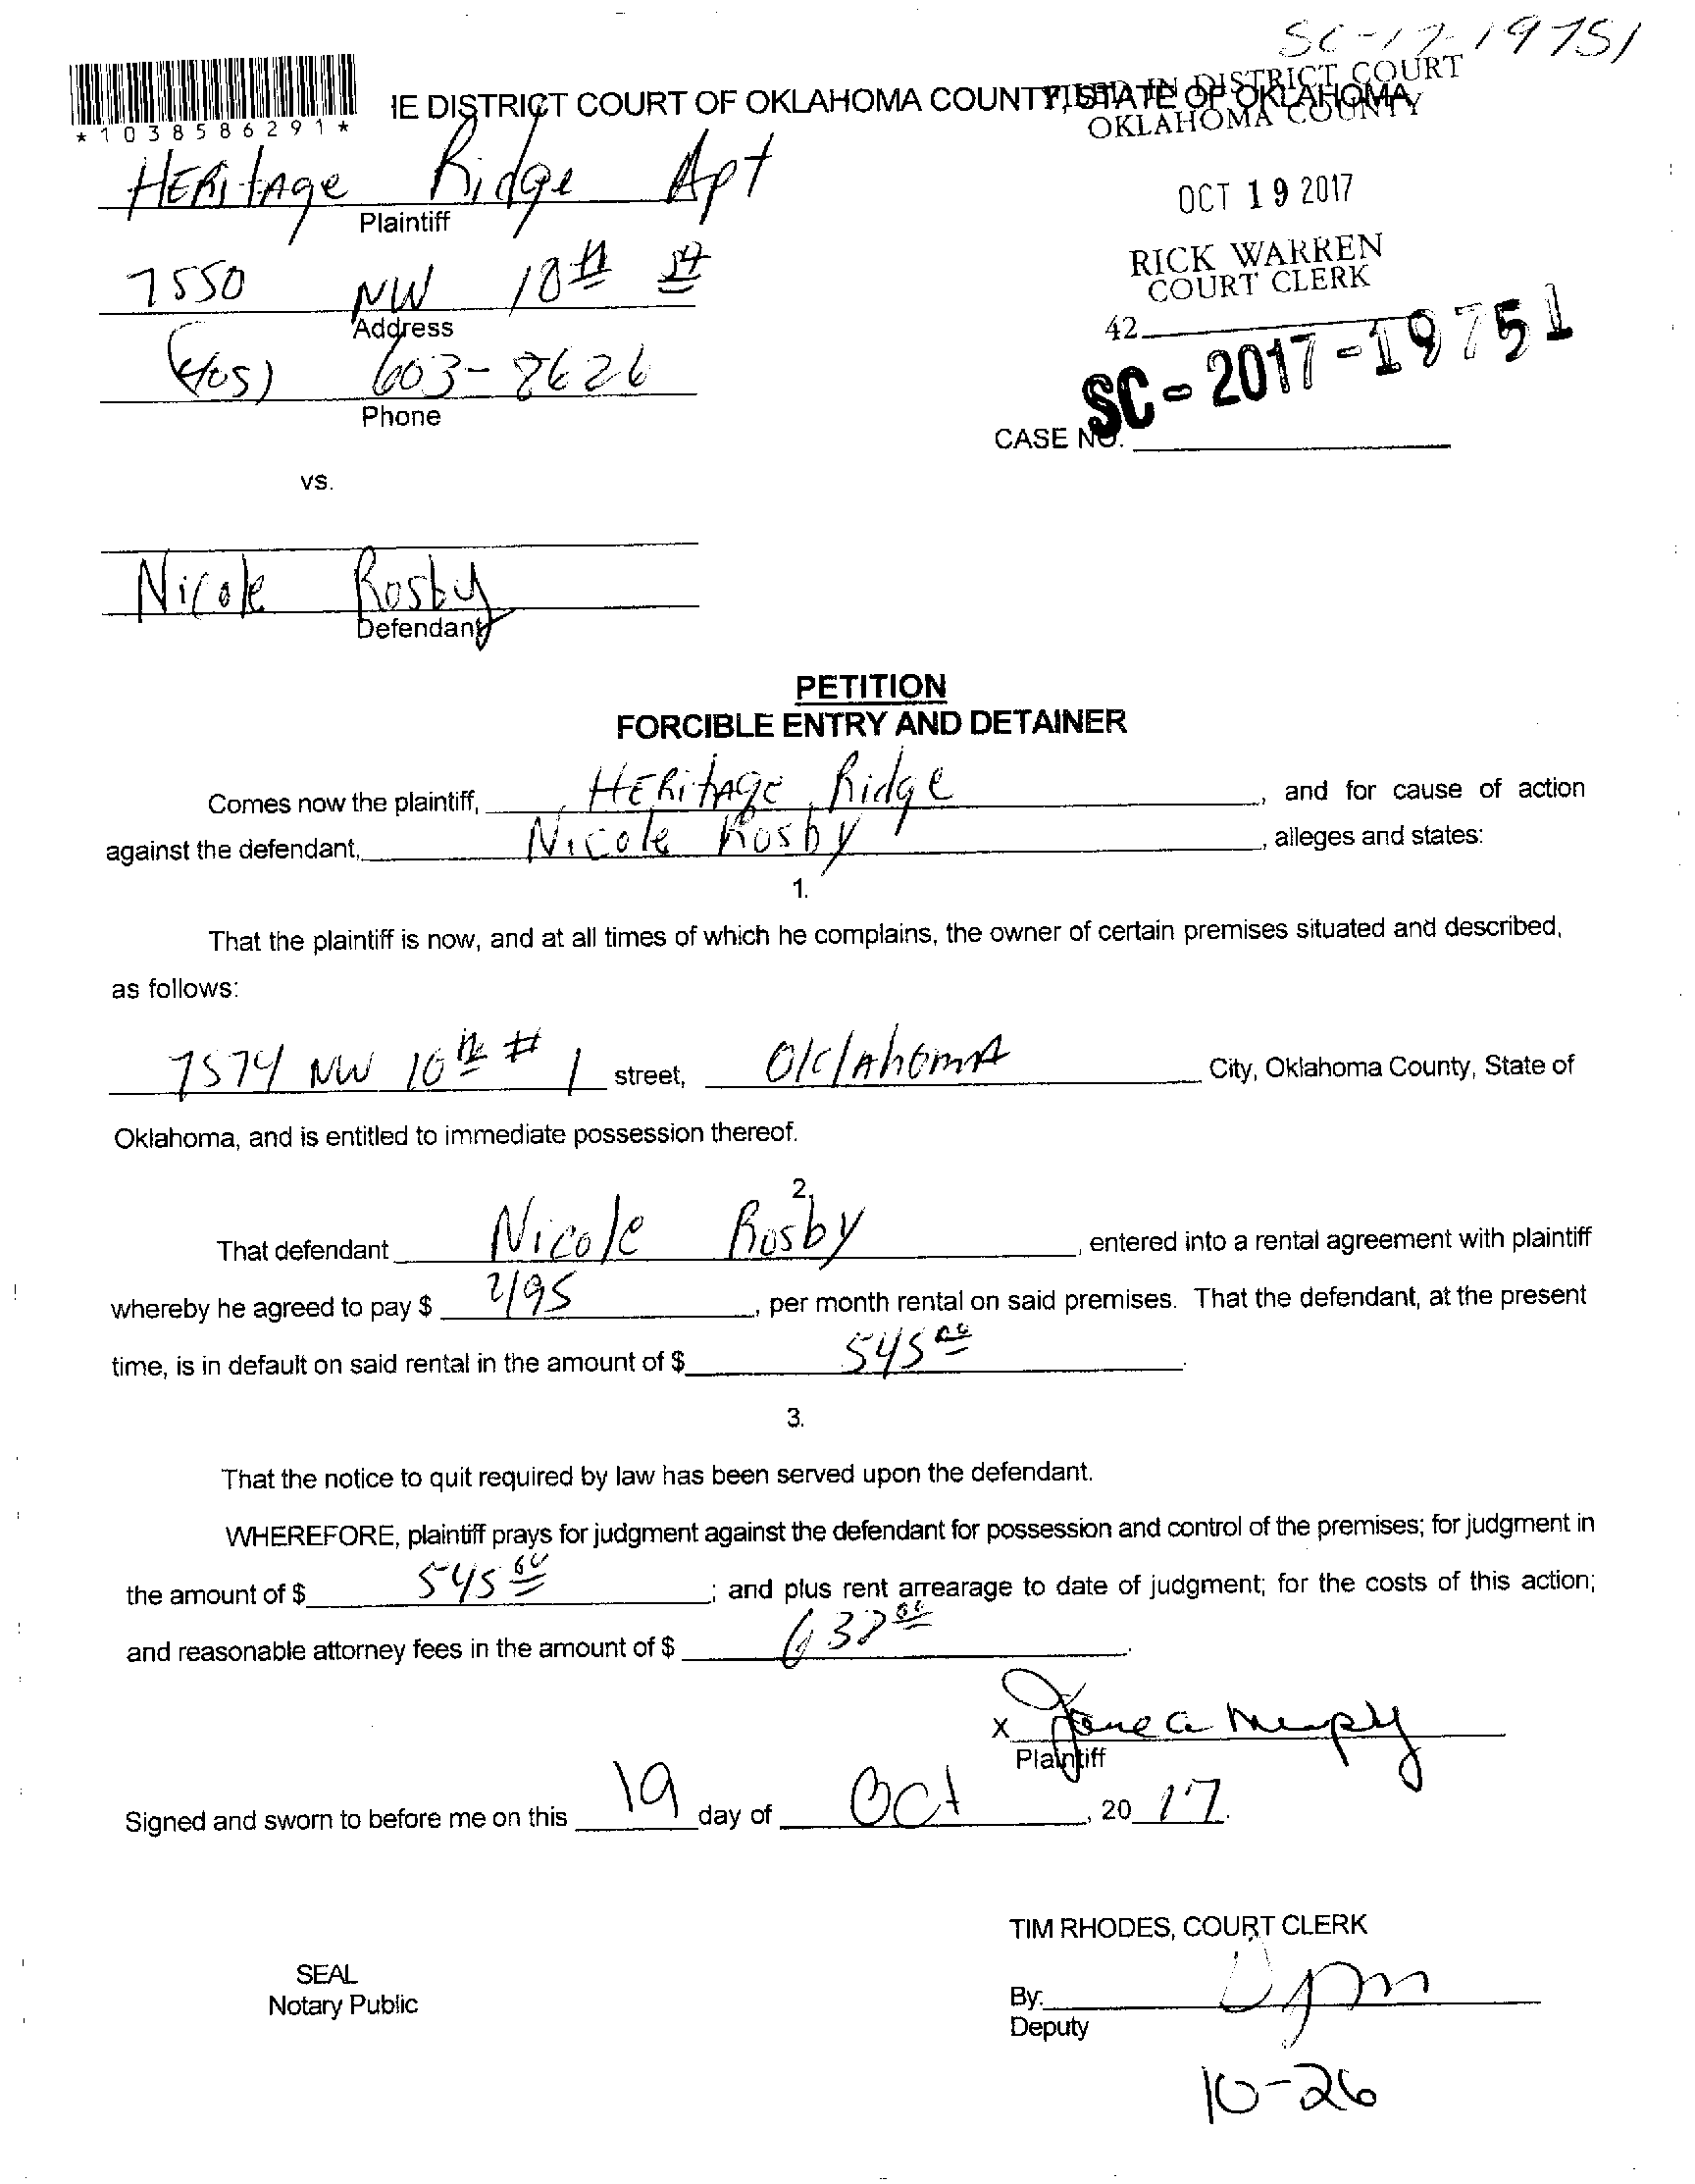 SC-17-19751
*1038586291*
IE DISTRICT COURT OF OKLAHOMA COUNTY, STATE OF OKLAHOMA
FILED IN DISTRICT COURT
OKLAHOMA COUNTY
HERitAge Ridge Apt
Plaintiff
OCT 19 2017
RICK WARREN
COURT CLERK
7550 NW 10th St
Address
42
(405) 603-8626
Phone
SC-2017-19751
CASE NO.
vs.
Nicole Rosby
Defendant
PETITION
FORCIBLE ENTRY AND DETAINER
Comes now the plaintiff, HERitAge Ridge, and for cause of action
against the defendant, Nicole Rosby, alleges and states:
1.
That the plaintiff is now, and at all times of which he complains, the owner of certain premises situated and described,
as follows:
7574 NW 10th # 1 street, OklAhomA City, Oklahoma County, State of
Oklahoma, and is entitled to immediate possession thereof.
2.
That defendant Nicole Rosby, entered into a rental agreement with plaintiff
whereby he agreed to pay $ 495, per month rental on said premises. That the defendant, at the present
time, is in default on said rental in the amount of $ 545 00.
3.
That the notice to quit required by law has been served upon the defendant.
WHEREFORE, plaintiff prays for judgment against the defendant for possession and control of the premises; for judgment in
the amount of $ 545 00; and plus rent arrearage to date of judgment; for the costs of this action;
and reasonable attorney fees in the amount of $.
x
Plaintiff
Signed and sworn to before me on this 19 day of Oct, 20 17.
TIM RHODES, COURT CLERK
SEAL
Notary Public
By:
Deputy
10-26